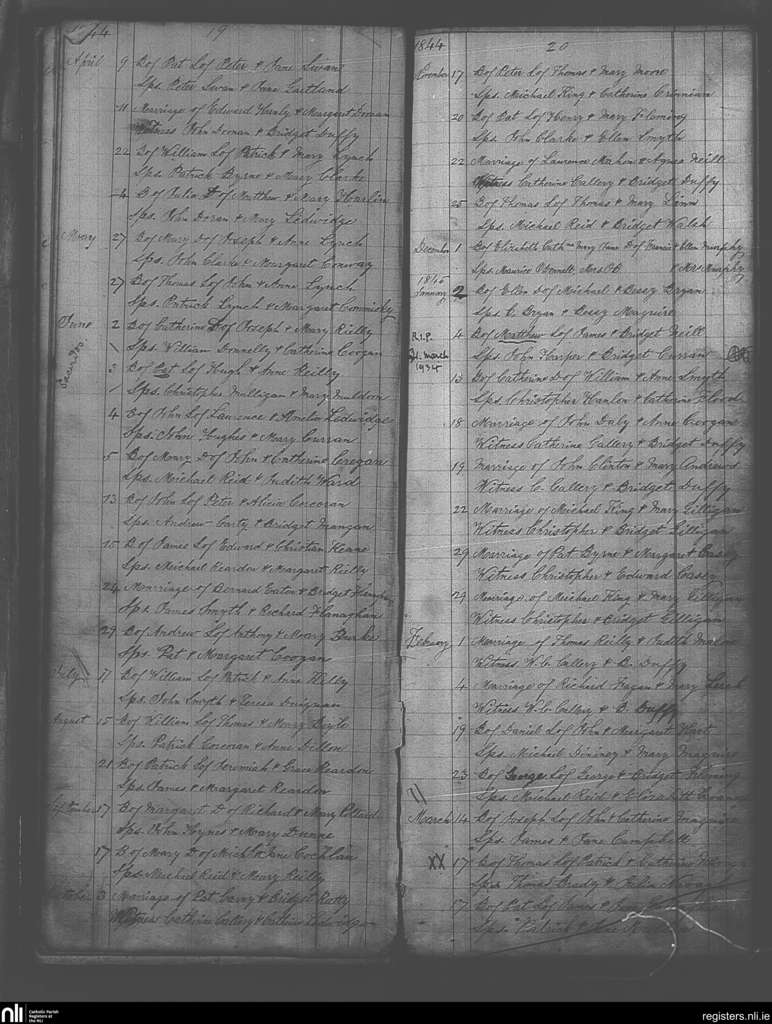 1844
19
April 9 B of Pat S of Peter & Jane Swan
Sps. Peter Swan & Jane
11 Marriage of Edward Hanly & Margaret Doonan
Witness John Doonan & Bridget Duffy
22 B of William S of Patrick & Mary Lynch
Sps. Patrick Byrne & Mary Clarke
24 B of Julia D of Matthew & Mary Hanlin
Sps. John Doran & Mary Ledwidge
May 27 B of Mary D of Joseph & Anne Lynch
Sps. John Clarke & Margaret Conway
27 B of Thomas S of John & Anne Lynch
Sps. Patrick Lynch & Margaret
June 2 B of Catherine D of Joseph & Mary Rielly
Sps. William Donnelly & Catherine Coogan
3 B of Pat S of Hugh & Anne Reilly
Sps. Christopher Mulligan & Mary Muldoon
4 B of John S of Laurence & Amelia Ledwidge
Sps. John Hughes & Mary Curran
5 B of Mary D of John & Catherine Cregan
Sps. Michael Reid & Judith Ward
13 B of John S of Peter & Alicia Corcoran
Sps. Andrew Carty & Bridget Mangan
15 B of James S of Edward & Christian Keane
Sps. Michael Reardon & Margaret Rielly
24 Marriage of Bernard Eaton & Bridget
Sps. James Smyth & Richard Flanaghan
29 B of Andrew S of Anthony & Mary Burke
Sps. Pat & Margaret Coogan
July 11 B of William S of Patrick & Anne Kelly
Sps. John Smyth & Teresa Duignan
August 15 B of William S of Thomas & Mary Boyle
Sps. Patrick Corcoran & Anne Dillon
21 B of Patrick S of Jeremiah & Grace Reardon
Sps. James & Margaret Reardon
September 17 B of Margaret D of Richard & Mary
Sps. John Hoynes & Mary Dunne
17 B of Mary D of Michl & Jane Coghlan
Sps. Michael Reid & Mary Reilly
October 3 Marriage of Pat Carry & Bridget
Witness Catherine Callery & Catherine
1844
20
November 17 B of Peter S of Thomas & Mary Moore
Sps. Michael King & Catherine Crinnian
20 B of Pat S of Henry & Mary Flemony
Sps. John Clarke & Ellen Smyth
22 Marriage of Lawrence Mahon & Agnes Neill
Witness Catherine Callery & Bridget Duffy
25 B of Thomas S of Thomas & Mary Linn
Sps. Michael Reid & Bridget Walsh
December 1 B of Elizabeth Cath Mary Anne D of Francis & Ellen Murphy
Sps. Maurice O'Connell, Mrs & Mrs Murphy
1845
January 2 B of Ellen D of Michael & Bessy Bryan
Sps. C. Bryan & Bessy Maguire
R.I.P. 4 B of Matthew S of James & Bridget Neill
March Sps. John Harper & Bridget Curran
1934
13 B of Catherine D of William & Anne Smyth
Sps. Christopher Hanlon & Catherine Flood
18 Marriage of John Daly & Anne Coogan
Witness Catherine Callery & Bridget Duffy
19 Marriage of John Clinton & Mary Andrews
Witness C. Callery & Bridget Duffy
22 Marriage of Michael King & Mary Gilligan
Witness Christopher & Bridget Gilligan
29 Marriage of Pat Byrne & Margaret Casey
Witness Christopher & Edward Casey
29 Marriage of Michael King & Mary Gilligan
Witness Christopher & Bridget Gilligan
February 1 Marriage of Thomas Reilly & Judith
Witness C. Callery & B. Duffy
4 Marriage of Richard Fagan & Mary
Witness C. Callery & B. Duffy
19 B of Daniel S of John & Margaret Hart
Sps. Michael & Mary Maguire
23 B of George S of George & Bridget Fleming
Sps. Michael Reid & Elizabeth
March 14 B of Joseph S of John & Catherine Maguire
Sps. James & Jane Campbell
XX 17 B of Thomas S of Patrick & Catherine
Sps. Thomas Grady & Julia
17 B of Pat S of James &
Sps. Patrick &
nli
Catholic Parish
Registers at
the NLI
registers.nli.ie